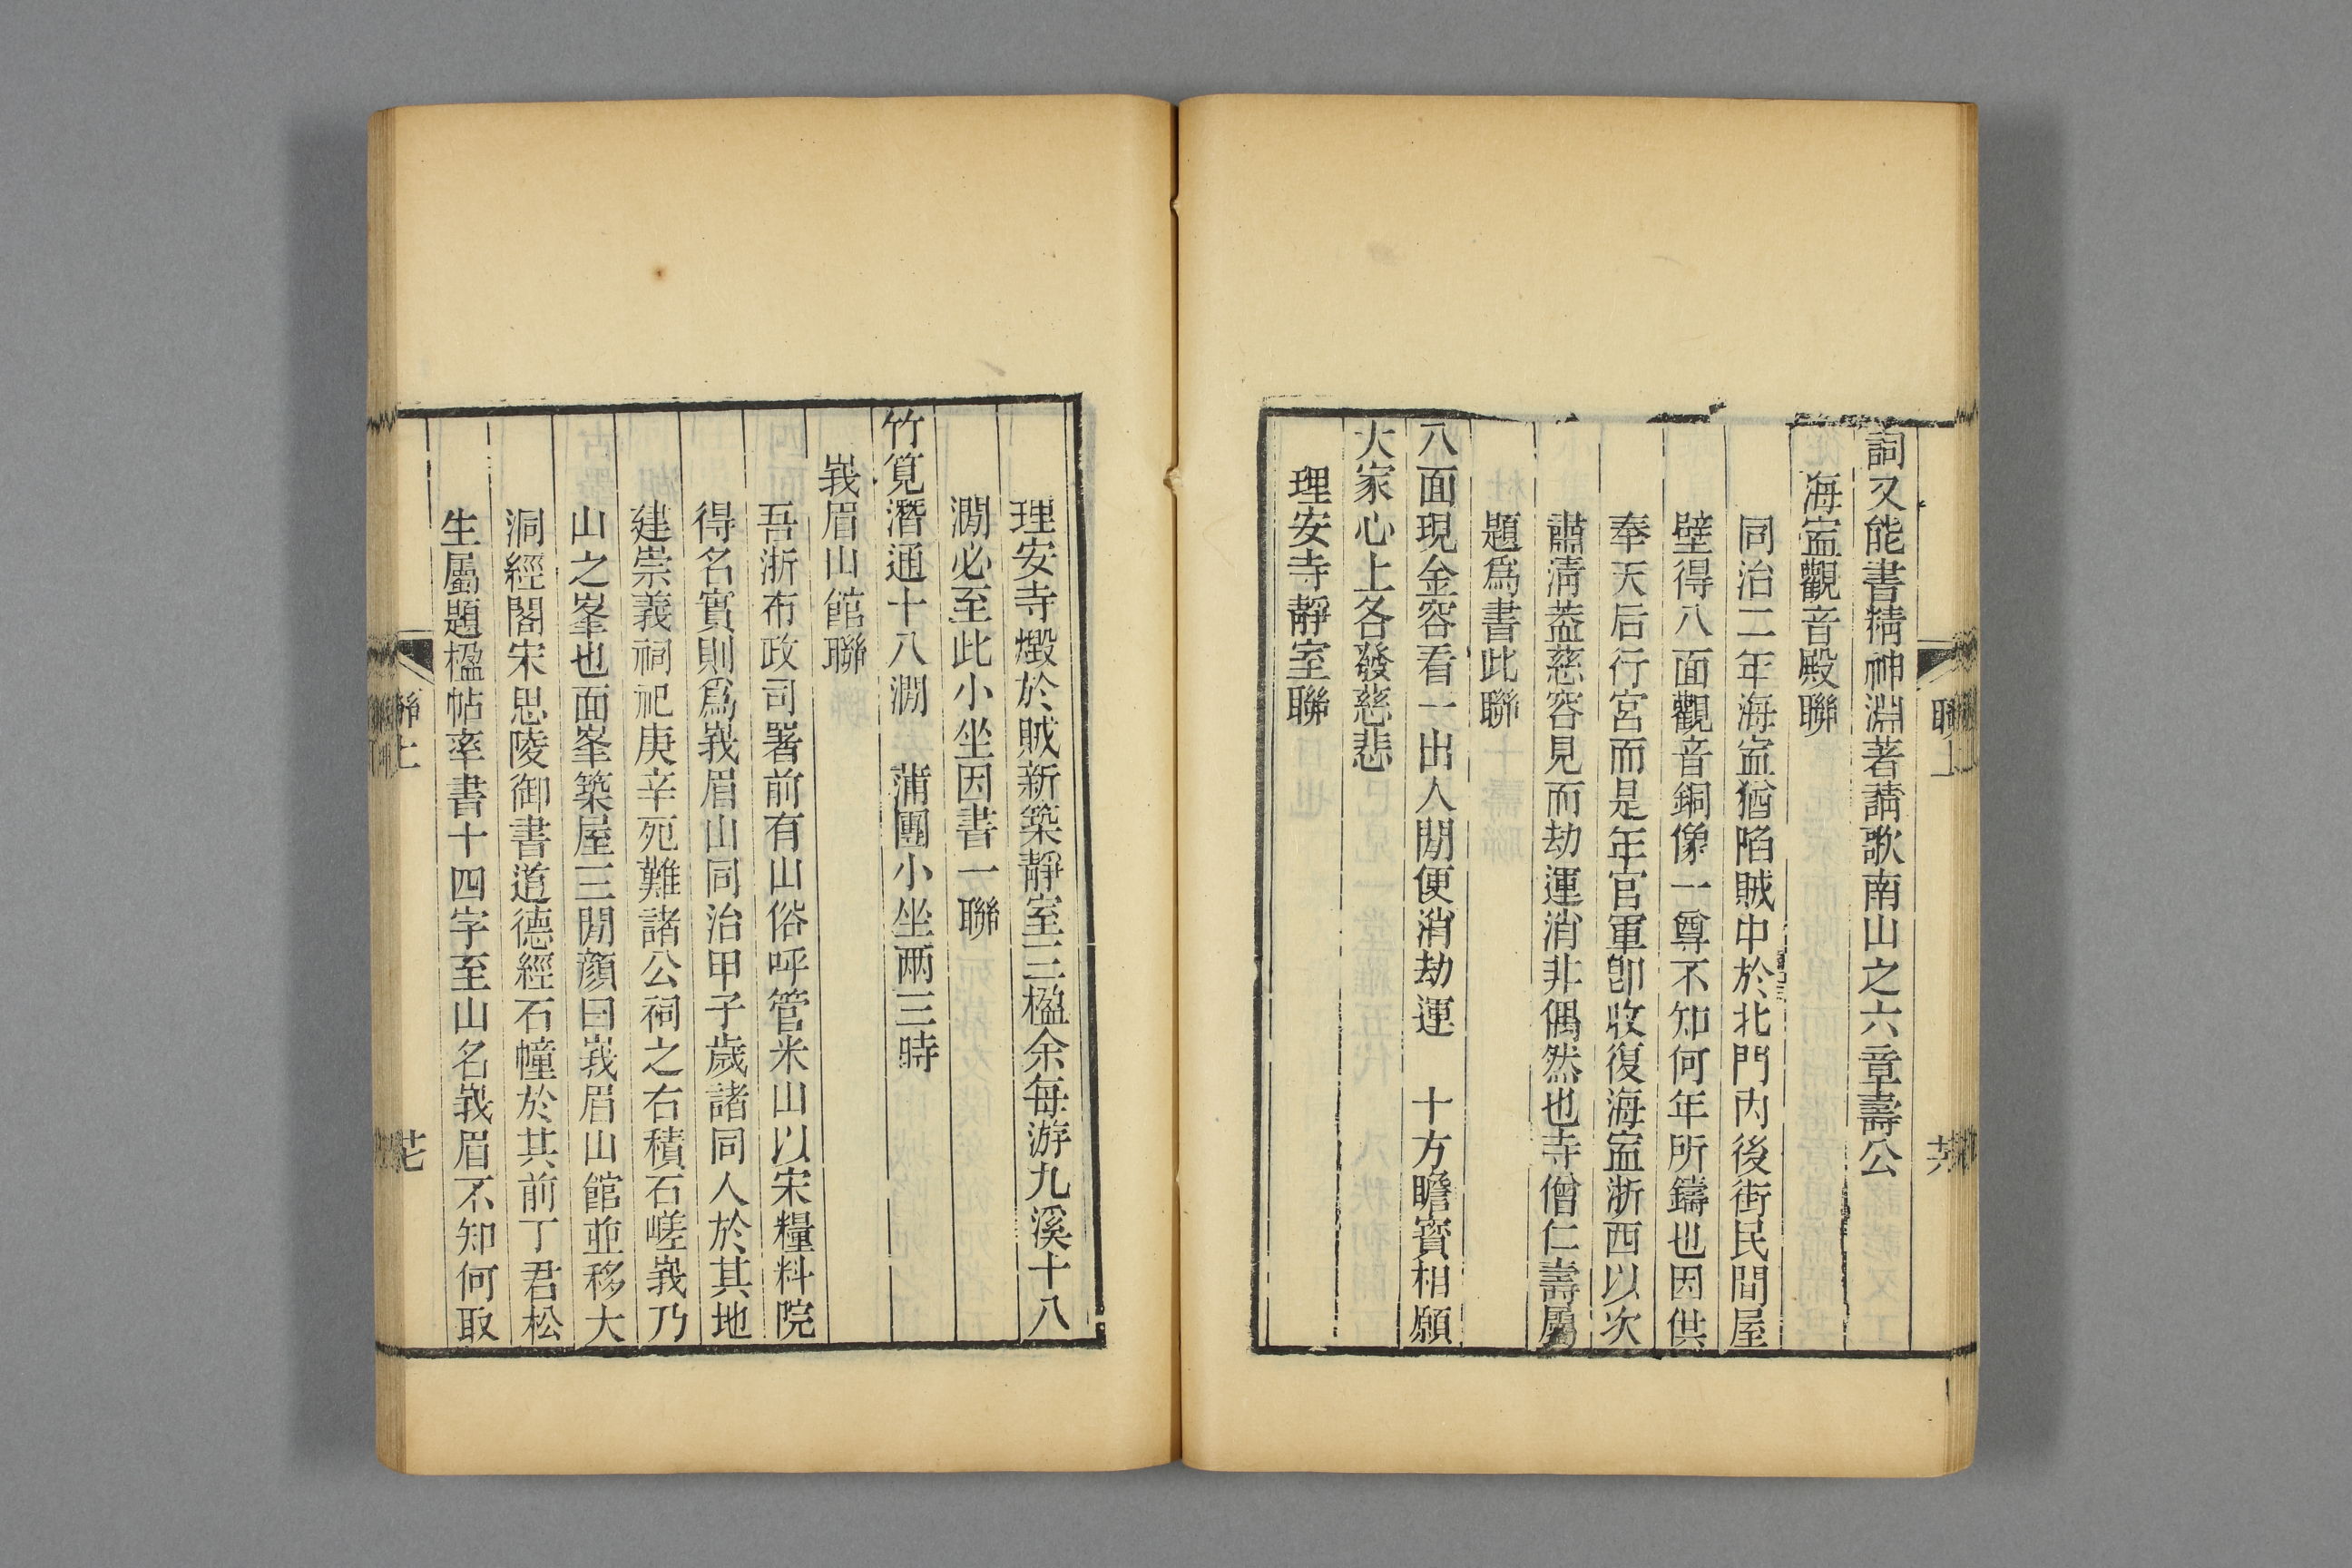 詞又能書精神淵著請歌南山之六章壽公
海寍觀音殿聯
同治二年海寍猶陷賊中於北門內後街民間屋
壁得八面觀音銅像一尊不知何年所鑄也因供
奉天后行宮而是年官軍卽收復海寍浙西以次
肅清葢慈容見而劫運消非偶然也寺僧仁壽屬
題爲書此聯
八面現金容看一出人閒便消劫運　十方瞻寶相願
大家心上各發慈悲
理安寺靜室聯
理安寺燬於賊新築靜室三楹余每游九溪十八
澗必至此小坐因書一聯
竹筧潛通十八澗　蒲團小坐兩三時
峩眉山館聯
吾浙布政司署前有山俗呼管米山以宋糧料院
得名實則爲峩眉山同治甲子歲諸同人於其地
建崇義祠祀庚辛死難諸公祠之右積石嵯峩乃
山之峯也面峯築屋三閒顏曰峩眉山館並移大
洞經閣宋思陵御書道德經石幢於其前丁君松
生屬題楹帖率書十四字至山名峩眉不知何取
聯上